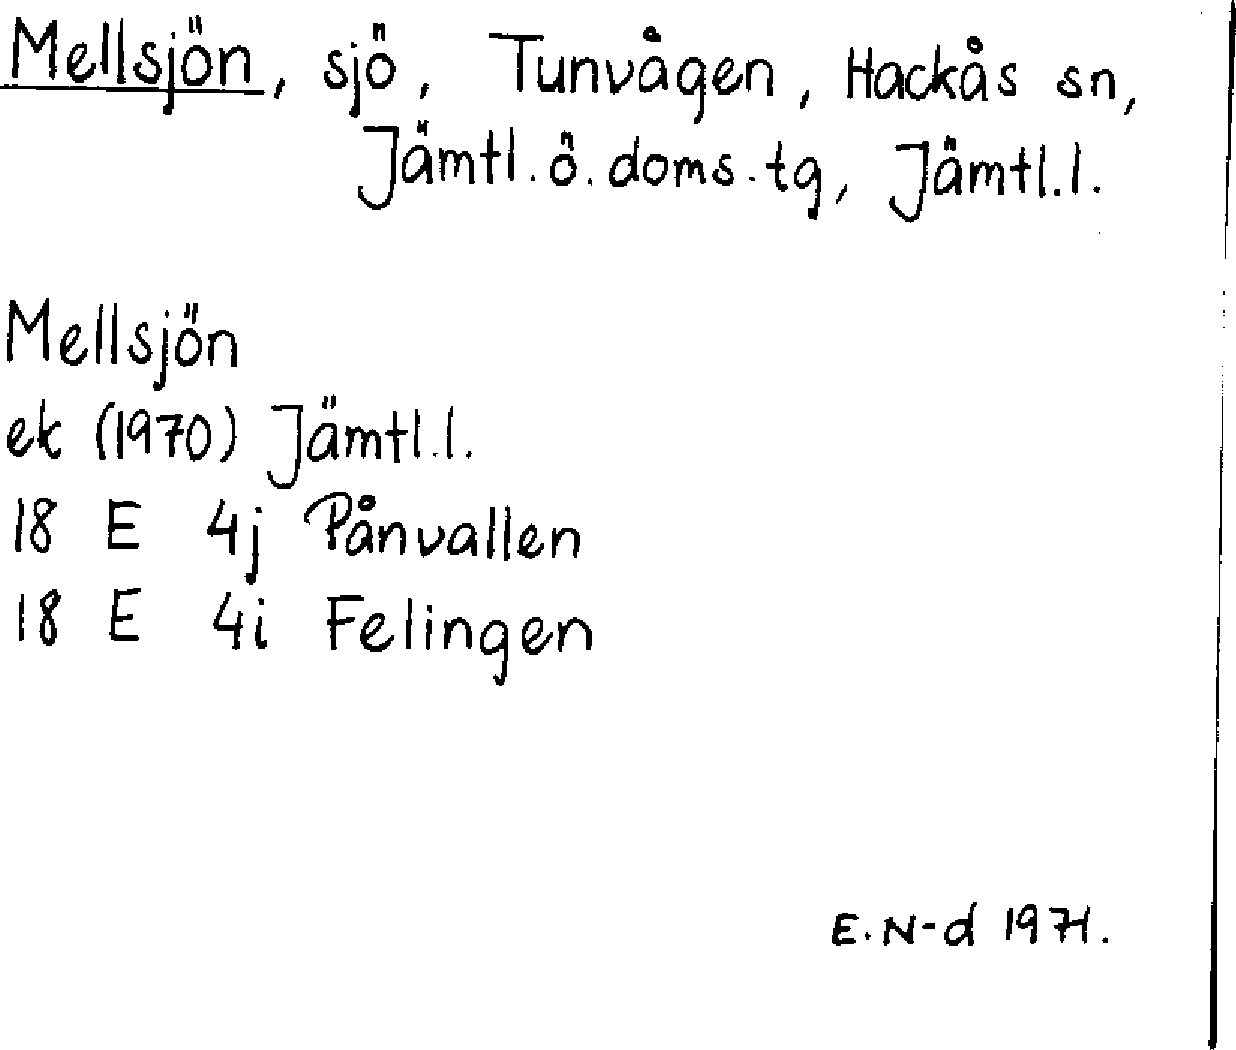 Mellsjön, sjö, Tunvågen, Hackås sn,
Jämtl. ö. doms. tg, Jämtl. l.
Mellsjön
ek (1970) Jämtl. l.
18 E 4j Pånvallen
18 E 4i Felingen
E. N-d 1971.